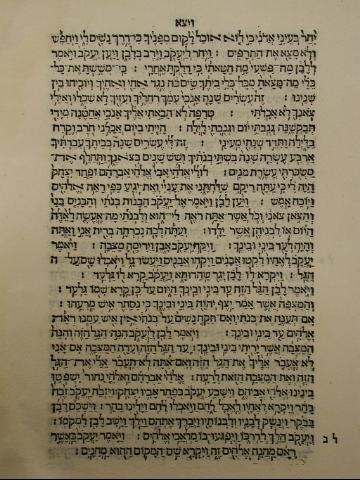 ויצא
יחר בעיני אדני כי לוא אוכל לקום מפניך כי דרך נשים לי ויחפש
ולא מצא את התרפים : ויחר ליעקב וירב בלבן ויען יעקב ויאמר
ללבן מה פשעי מה חטאתי כי דלקת אחרי : כי מששת את כל
כלי מה מצאת מכל כלי ביתך שים כה נגד אחי ואחיך ויוכיחו בין
שנינו : זה עשרים שנה אנכי עמך רחליך ועזיך לא שכלו ואילי
צאנך לא אכלתי : טרפה לא הבאתי אליך אנכי אחטנה מידי
תבקשנה גנבתי יום וגנבתי לילה : הייתי ביום אכלני חרב וקרח
בלילה ותדד שנתי מעיני : זה לי עשרים שנה בביתך עבדתיך
ארבע עשרה שנה בשתי בנתיך ושש שנים בצאנך ותחלף את
משכרתי עשרת מנים : לולי אלהי אבי אלהי אברהם ופחד יצחק
היה לי כי עתה ריקם שלחתני את עניי ואת יגיע כפי ראה אלהים
ויוכח אמש : ויען לבן ויאמר אל יעקב הבנות בנתי והבנים בני
והצאן צאני וכל אשר אתה ראה לי הוא ולבנתי מה אעשה לאלה
היום או לבניהן אשר ילדו : ועתה לכה נכרתה ברית אני ואתה
והיה לעד ביני ובינך : ויקח יעקב אבן וירימה מצבה : ויאמר
יעקב לאחיו לקטו אבנים ויקחו אבנים ויעשו גל ויאכלו שם על
הגל : ויקרא לו לבן יגר שהדותא ויעקב קרא לו גלעד :
ויאמר לבן הגל הזה עד ביני ובינך היום על כן קרא שמו גלעד :
והמצפה אשר אמר יצף יהוה ביני ובינך כי נסתר איש מרעהו :
אם תענה את בנתי ואם תקח נשים על בנתי אין איש עמנו ראה
אלהים עד ביני ובינך : ויאמר לבן ליעקב הנה הגל הזה והנה
המצבה אשר יריתי ביני ובינך : עד הגל הזה ועדה המצבה אם אני
לא אעבר אליך את הגל הזה ואם אתה לא תעבר אלי את הגל
הזה ואת המצבה הזאת לרעה : אלהי אברהם ואלהי נחור ישפטו
בינינו אלהי אביהם וישבע יעקב בפחד אביו יצחק : ויזבח יעקב זבח
בהר ויקרא לאחיו לאכל לחם ויאכלו לחם וילינו בהר : וישכם לבן
בבקר וינשק לבניו ולבנותיו ויברך אתהם וילך וישב לבן למקמו :
לב
ויעקב הלך לדרכו ויפגעו בו מלאכי אלהים : ויאמר יעקב כאשר
ראם מחנה אלהים זה ויקרא שם המקום ההוא מחנים :